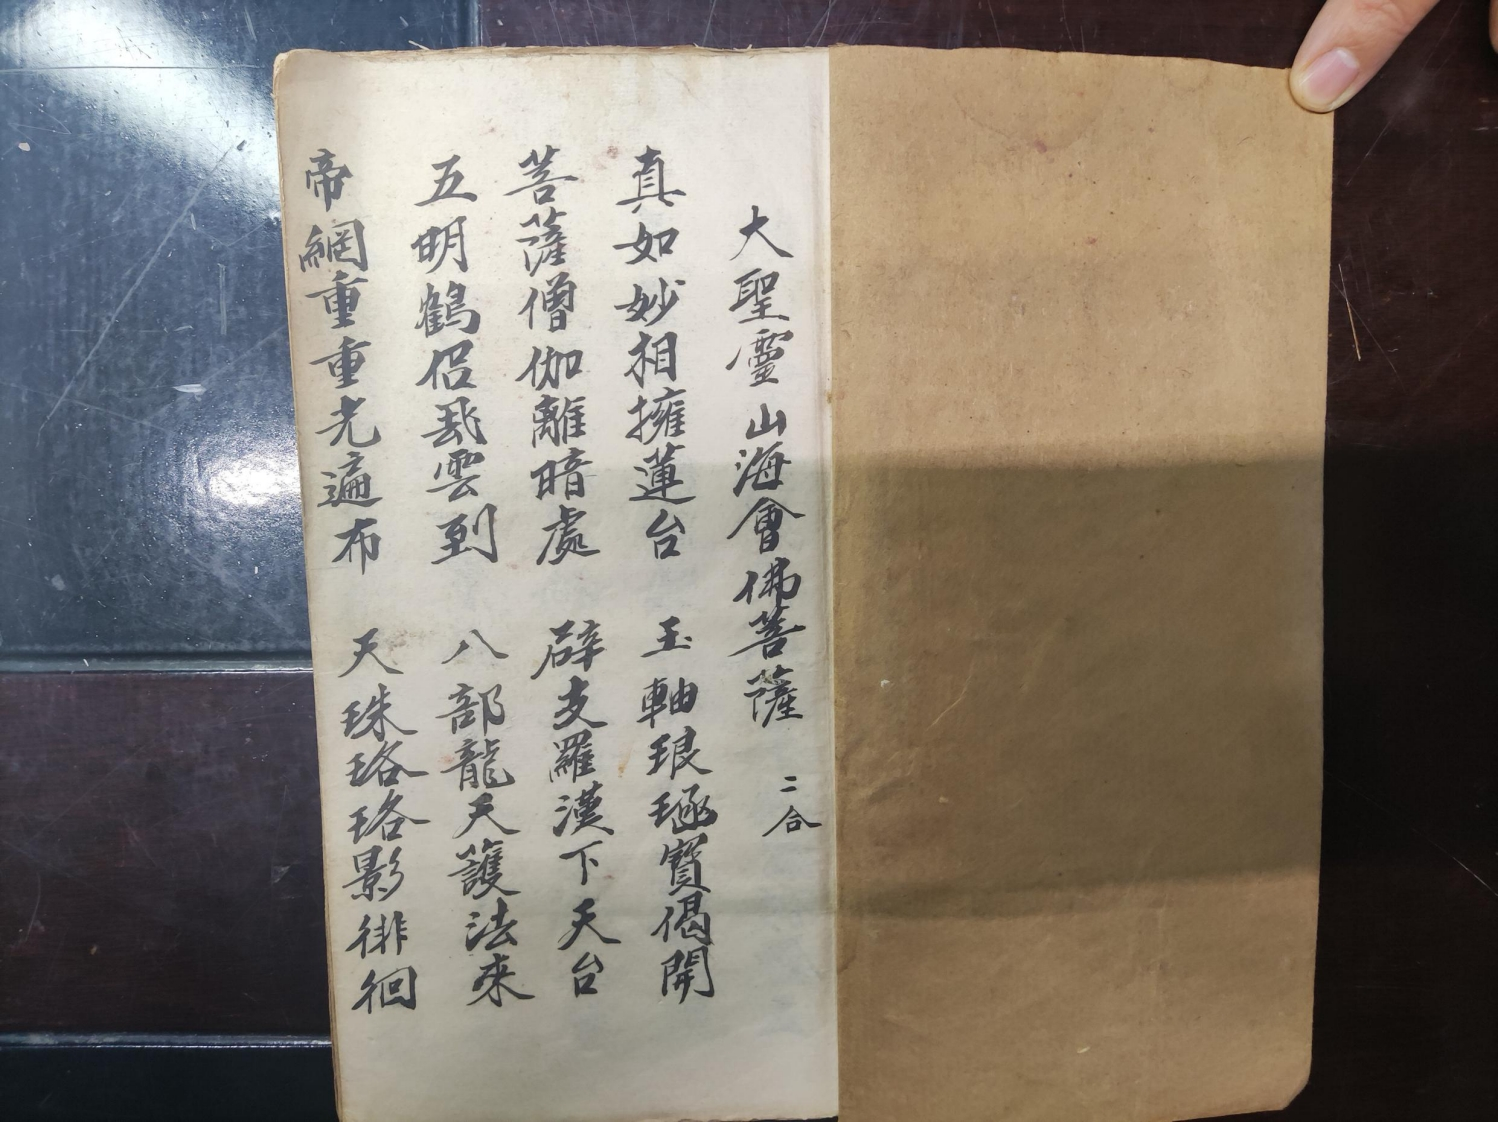 大聖靈山海會佛菩薩 二合
真如妙相擁蓮台 玉軸琅函寶偈開
菩薩僧伽離暗處 辟支羅漢下天台
五明鶴侶乘雲到 八部龍天護法來
帝網重重光遍布 天珠珞珞影徘徊